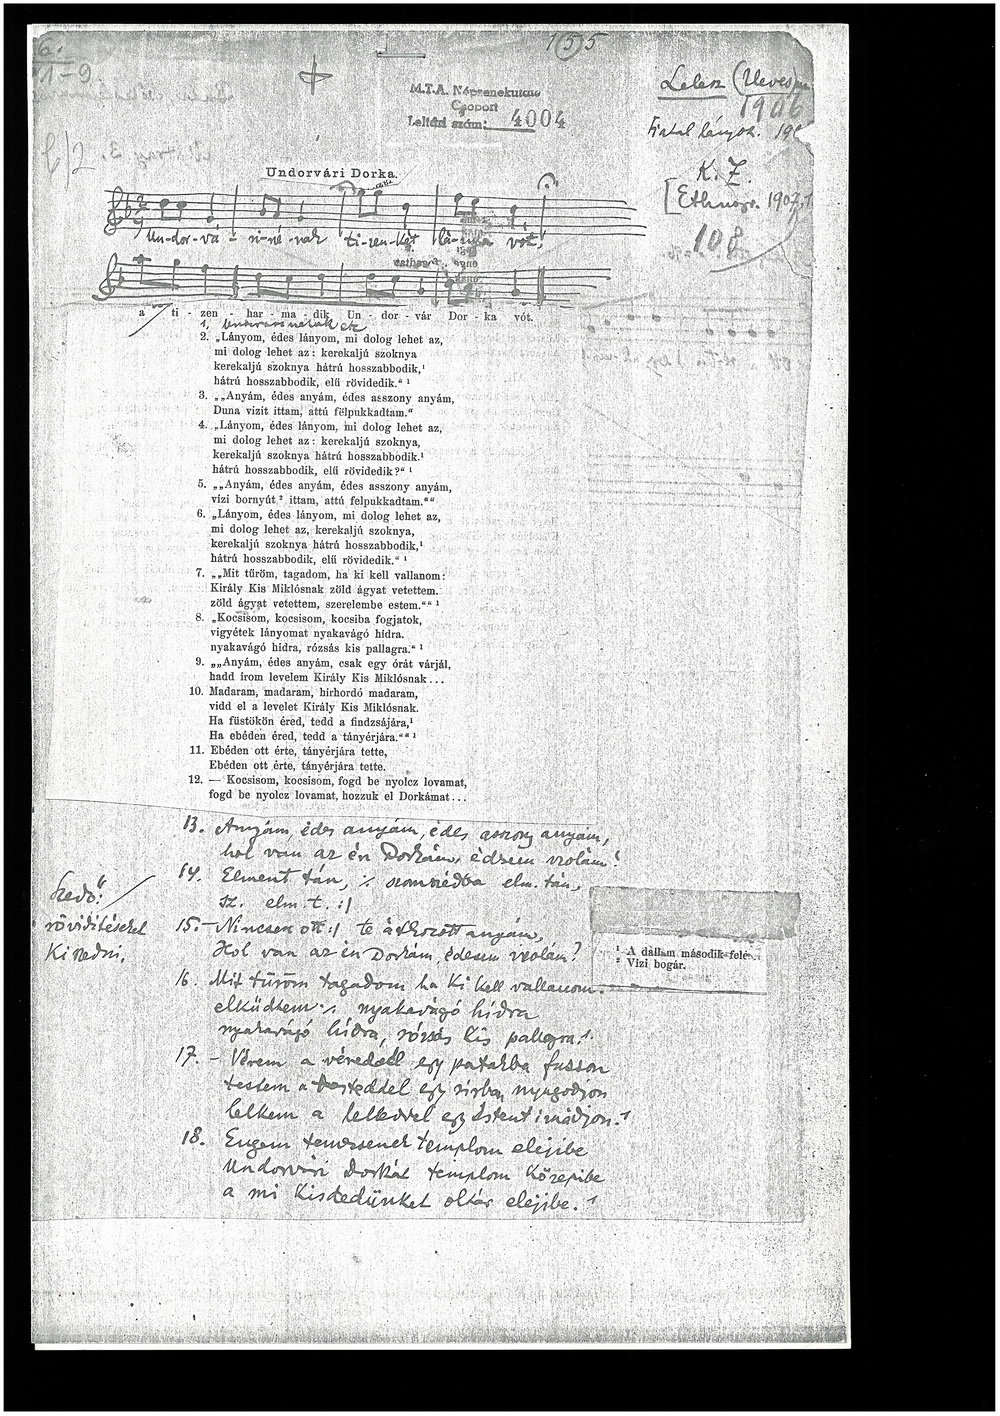 6.
1-9.
1(5)5
M.T.A. Népzenekutató
Csoport
Leltári szám: 4004
Lelesz (Heves m
1906
Fiatal lányok. 190
K. Z.
[Ethnogr. 1907.
108
Undorvári Dorka.
Un-dor-vá-ri-né-nak ti-zen-két lá-nya vót,
a ti - zen - har - ma - dik Un - dor - vár Dor - ka vót.
1.
2. „Lányom, édes lányom, mi dolog lehet az,
mi dolog lehet az: kerekaljú szoknya
kerekaljú szoknya hátrú hosszabbodik,¹
hátrú hosszabbodik, elű rövidedik.“ ¹
3. „„Anyám, édes anyám, édes asszony anyám,
Duna vizit ittam, attú félpukkadtam.“
4. „Lányom, édes lányom, mi dolog lehet az,
mi dolog lehet az: kerekaljú szoknya,
kerekaljú szoknya hátrú hosszabbodik.¹
hátrú hosszabbodik, elű rövidedik?“ ¹
5. „„Anyám, édes anyám, édes asszony anyám,
vizi bornyút ² ittam, attú felpukkadtam.““
6. „Lányom, édes lányom, mi dolog lehet az,
mi dolog lehet az, kerekaljú szoknya,
kerekaljú szoknya hátrú hosszabbodik,¹
hátrú hosszabbodik, elű rövidedik.“ ¹
7. „„Mit tűröm, tagadom, ha ki kell vallanom:
Király Kis Miklósnak zöld ágyat vetettem.
zöld ágyat vetettem, szerelembe estem.““ ¹
8. „Kocsisom, kocsisom, kocsiba fogjatok,
vigyétek lányomat nyakavágó hídra.
nyakavágó hídra, rózsás kis pallagra.“ ¹
9. „„Anyám, édes anyám, csak egy órát várjál,
hadd írom levelem Király Kis Miklósnak...
10. Madaram, madaram, hírhordó madaram,
vidd el a levelet Király Kis Miklósnak.
Ha füstökön éred, tedd a findzsájára,¹
Ha ebéden éred, tedd a tányérjára.““ ¹
11. Ebéden ott érte, tányérjára tette,
Ebéden ott érte, tányérjára tette.
12. — Kocsisom, kocsisom, fogd be nyolcz lovamat,
fogd be nyolcz lovamat, hozzuk el Dorkámat...
13. Anyám, édes anyám, édes asszony anyám,
hol van az én Dorkám, édesem violám?
14. Elment tán, ·/. szomszédba elm. tán,
sz. elm. t. :|
Szedő:
rövidítéseket
Kiszedni.
15. – Nincsen ott :| te átkozott anyám,
Hol van az én Dorkám, édesem violám?
16. Mit tűröm tagadom ha ki kell vallanom.
elküdtem ·/. nyakavágó hídra
nyakavágó hídra, rózsás kis pallagra.¹
17. – Vérem a véreddel egy patakba fusson
testem a testeddel egy sírban nyugodjon
lelkem a lelkeddel egy Istent imádjon.¹
18. Engem temessenek templom elejibe
Undorvári Dorkát templom közepibe
a mi kisdedünket oltár elejibe.¹
¹ A dallam második fele.
² Vízi bogár.